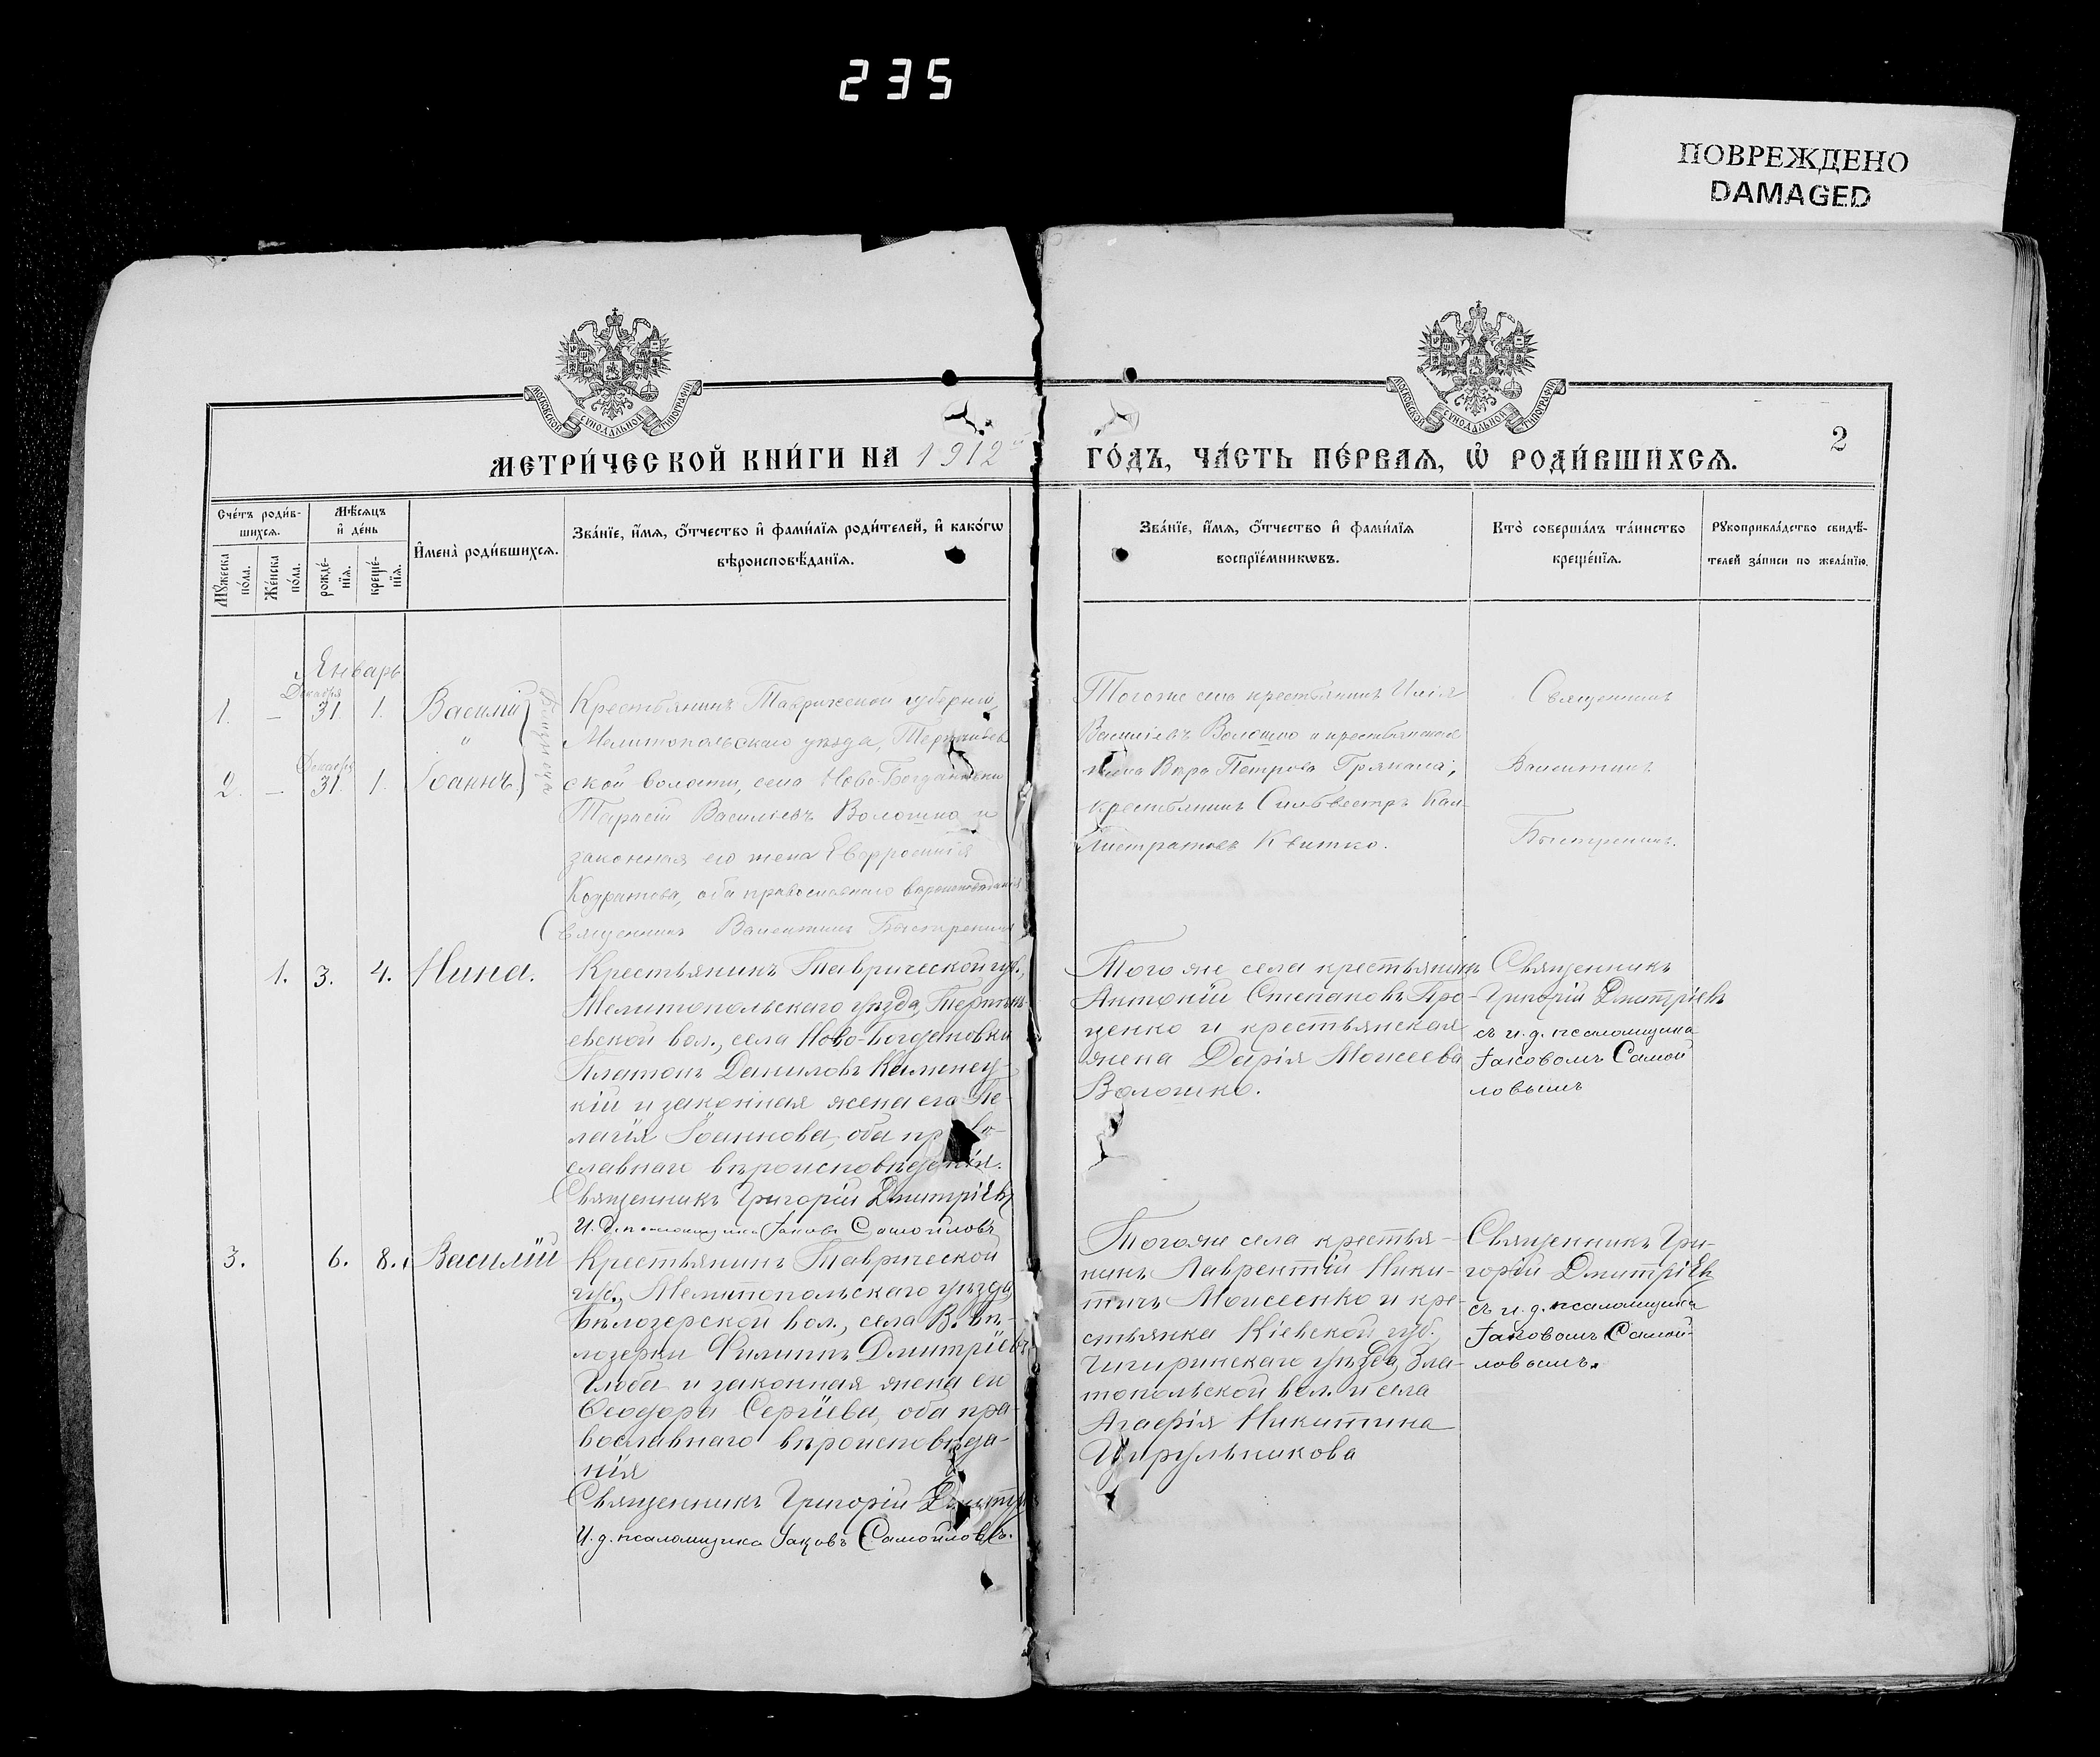 235
ПОВРЕЖДЕНО
DAMAGED
МОСКОВСКОЙ СѴНОДАЛЬНОЙ ТИПОГРАФІИ
МОСКОВСКОЙ СѴНОДАЛЬНОЙ ТИПОГРАФІИ
МЕТРИ́ЧЕСКОЙ КНИ́ГИ НА 1912
ГО́ДЪ, ЧА́СТЬ ПЕ́РВАѦ, Ѡ РОДИ́ВШИХСѦ.
2
Сче́тъ роди́в-
шихсѧ.
Мꙋ́жеска
по́ла.
Же́нска
по́ла.
Мѣ́сѧцъ
и҆ де́нь
рожде́-
нїѧ.
креще́-
нїѧ.
И҆мена̀ роди́вшихсѧ.
Зва́нїе, и҆́мѧ, ѻ҆́тчество и҆ фами́лїѧ роди́телей, и҆ како́гѡ
вѣроисповѣ́данїѧ.
Зва́нїе, и҆́мѧ, ѻ҆́тчество и҆ фами́лїѧ
воспрїе́мникѡвъ.
Кто̀ соверша́лъ та́инство
креще́нїѧ.
Рꙋкоприкла́дство свидѣ́-
телей за́писи по жела́нїю.
Январь
Декабря
1. — 31. 1. Василій
"
Декабря
2. — 31. 1. Іоаннъ
Близнецы
Крестьянинъ Таврической губерніи,
Мелитопольскаго уѣзда, Терпѣньев
ской волости, села Ново-Богдановки
Тарасій Васильевъ Волошко и
законная его жена Евфросинія
Кодратова, оба православнаго вѣроисповѣданія
Священникъ Валентинъ
Тогоже села крестьянинъ Илія
Василіевъ Волошко и крестьянская
жена Вѣра Петрова
крестьянинъ Сильвестръ Кал-
листратовъ Квитко.
Священникъ
Валентинъ
1. 3. 4. Нина.
Крестьянинъ Таврической губ.,
Мелитопольскаго уѣзда, Терпѣнь-
евской вол., села Ново-Богдановки
Платонъ Даниловъ Каменец-
кій и законная жена его Пе-
лагія Іоаннова, оба право-
славнаго вѣроисповѣданія.
Священникъ Григорій Дмитріевъ
И. д. псаломщика Іаковъ Самойловъ
Того же села крестьянинъ
Антоній Степановъ Про-
ценко и крестьянская
жена Дарія Моисеева
Волошко.
Священникъ
Григорій Дмитріевъ
съ и. д. псаломщика
Іаковомъ Самой
ловымъ
3. 6. 8. Василій
Крестьянинъ Таврической
губ., Мелитопольскаго уѣзда,
Бѣлозерской вол., села В. Бѣ-
лозерки Филиппъ Дмитріевъ
Глоба и законная жена его
Ѳеодора Сергіева, оба пра-
вославнаго вѣроисповѣда-
нія
Священникъ Григорій Дмитр
И. д. псаломщика Іаковъ Самойловъ.
Тогоже села крестья-
нинъ Лаврентій Ники-
тичъ Моисеенко и кре-
стьянка Кіевской губ.,
Чигиринскаго уѣзда, Зла-
топольской вол. и села
Агафія Никитина
Цирульникова
Священникъ Гри-
горій Дмитріевъ
съ и. д. псаломщика
Іаковомъ Самой-
ловымъ.